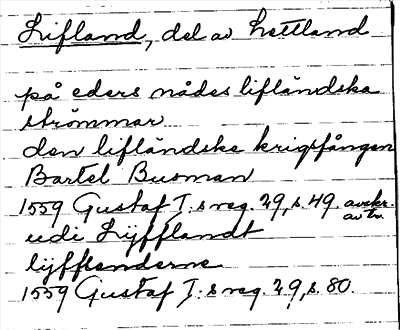 Lifland, del av Lettland
på eders nådes lifländska
strömmar
den lifländske krigsfången
Bartel Busman
1559 Gustaf I:s reg. 29, s. 49. avskr. av tr.
udi Lÿfflandt
lÿfflenderne
1559 Gustaf I:s reg. 29, s. 80.